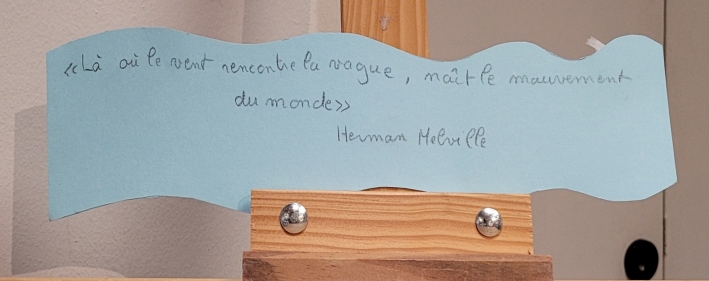 «Là où le vent rencontre la vague, naît le mauvement
du monde»
Herman Melville